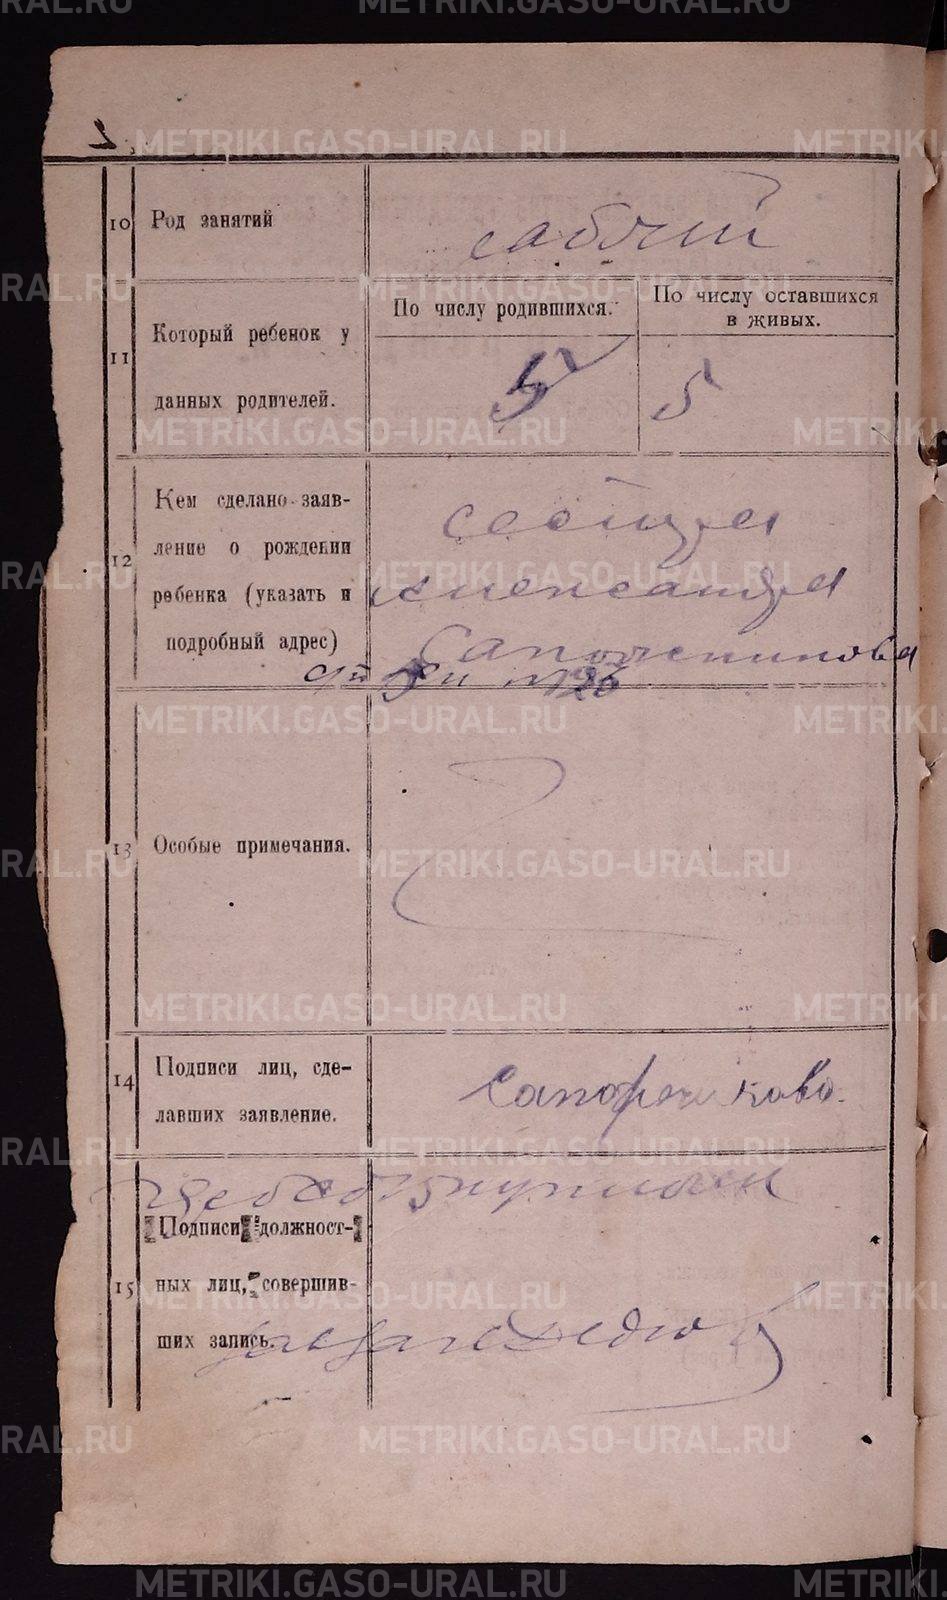 METRIKI.GASO-URAL.RU
2.
10 Род занятий
рабочий
11 Который ребенок у
данных родителей.
По числу родившихся.
По числу оставшихся
в живых.
5 5
12 Кем сделано заяв-
ление о рождении
ребенка (указать и
подробный адрес)
сестра
Александра
Сапожникова
13 Особые примечания.
14 Подписи лиц, сде-
лавших заявление.
Сапожникова.
15 Подписи должност-
ных лиц, совершив-
ших запись.